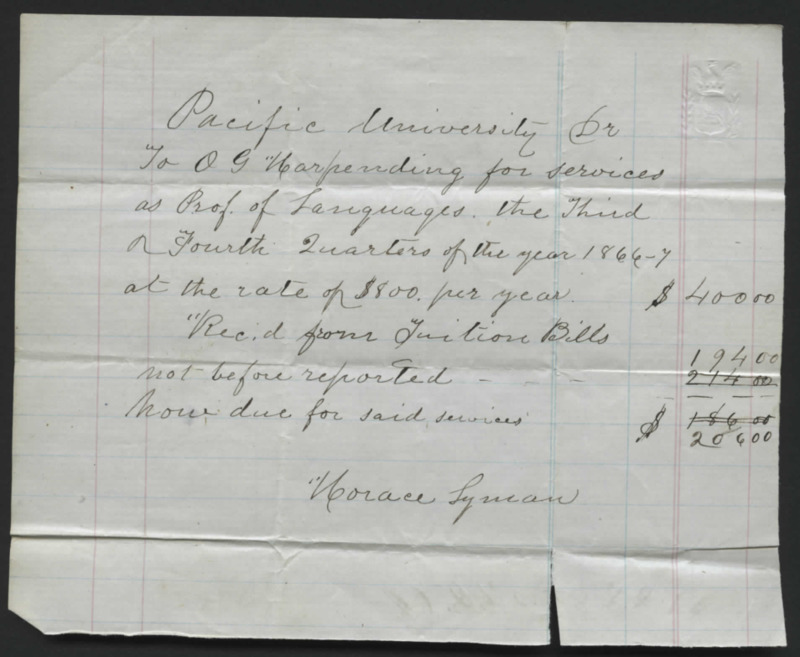 Pacific University Dr
To O G Harpending for services
as Prof. of Languages. the Third
& Fourth Quarters of the year 1866-7
at the rate of $800. per year. $ 400 00
Rec.d from Tuition Bills
194 00
not before reported - - - 214 00
now due for said services $ 186 00
206 00
Horace Lyman